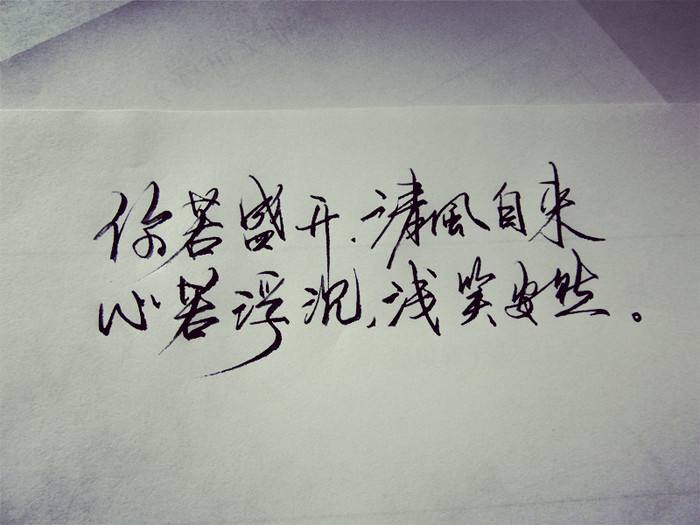 你若盛开,清風自来
心若浮沉,浅笑安然。